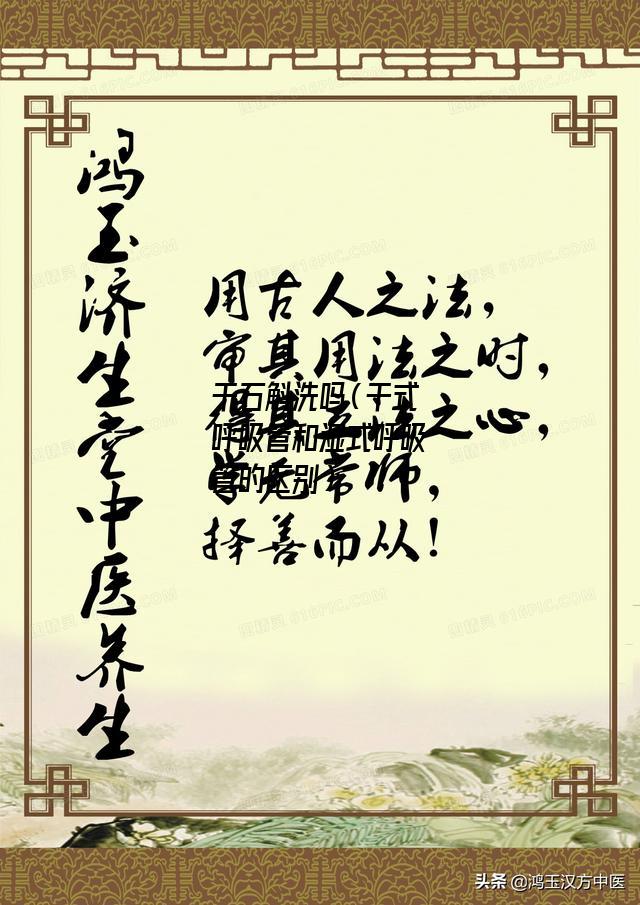 鸿玉济生堂中医养生
用古人之法，
审其用法之时，
得其立法之心，
学无常师，
择善而从！
干石斛洗吗(干式
呼吸管和湿式呼吸
管的区别
头条 @鸿玉汉方中医